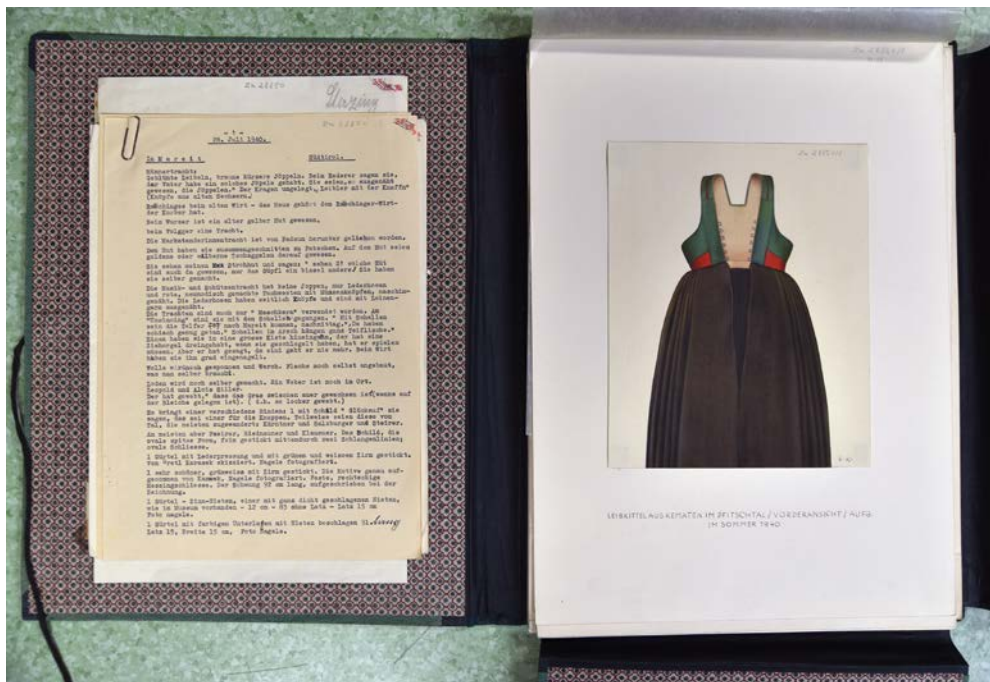 Sterzing
- 1 -
20. Juli 1940.
In Mareit Südtirol.
Männertracht:
Geblümte Leibeln, braune kürzere Jöppeln. Beim Rederer sagen sie,
der Vater habe ein solches Jöpele gehabt. Sie seien so ausgenäht
gewesen, die Jöppelen." Der Kragen umgelegt, Leibler mit der Knöffn"
(Knöpfe aus alten Sechsern.)
beim alten Wirt - das Haus gehört dem Wirt-
der Korber hat.
Beim Wurmer ist ein alter gelber Hut gewesen.
beim Volgger eine Tracht.
Die Marketenderinnentracht ist von herunter worden.
Den Hut haben sie zusammengeschnitten zu Patschen. Auf dem Hut seien
goldene oder wollerne Tschaggelen darauf gewesen.
Die sehen meinen Strohhut und sagen: " sehen S' solche Hüt
sind auch da gewesen, nur das Güpfl ein bissel anders/ die haben
sie selber gemacht.
Die Musik- und Schützentracht hat keine Joppen, nur Lederhosen
und rote, neumodisch gemachte Tuchwesten mit Münzenknöpfen, maschin-
genäht. Die Lederhosen haben seitlich Knöpfe und sind mit Leinen-
garn ausgenäht.
Die Trachten sind auch zur " Maschkera" verwendet worden. Am
sind sie mit den Schellen gegangen. " Mit Schellen
sein die Telfer nach Mareit kommen, nachmittag.", Da haben
schiach genug getan." Schellen in Arsch hängen ganz Teiflische."
Einen haben sie in eine grosse Kiste hineingetan, der hat eine
Ziehorgel dreingehabt, wenn sie geschlagelt haben, hat er spielen
müssen. Aber er hat gesagt, da eini geht er nie mehr. Beim Wirt
haben sie ihn grad eingenagelt.
Wolle wird noch gesponnen und Werch. Flachs noch selbst angebaut,
was man selber braucht.
Loden wird noch selber gemacht. Ein Weber ist noch im Ort.
Leopold und Alois Siller.
Der hat gewebt," dass das Gras zwischen auer gewachsen ist (wenns auf
der Bleiche gelegen ist). ( d.h. so locker gewebt.)
Er bringt einer verschiedene Binden: 1 mit Schild " Glückauf" sie
sagen, das sei einer für die Knappen. Teilweise seien diese vom
Tal, die meisten zugewandert: Kärntner und Salzburger und Steirer.
Am meisten aber Passirer, Riednauner und Klausner. Das Schild, die
ovale spitze Form, fein gestickt mittendurch zwei Schlangenlinien;
ovale Schliesse.
1 Gürtel mit Lederpressung und mit grünem und weissem Zirm gestickt.
Von Gretl Karasek skizziert. Nagele fotografiert.
1 sehr schöner, grünweiss mit Zirm gestickt. Die Motive genau auf-
genommen von Karasek. Nagele fotografiert. Feste, rechteckige
Messingschliesse. Der Schwung 97 cm lang, aufgeschrieben bei der
Zeichnung.
1 Gürtel - Zinn-Nieten, einer mit ganz dicht geschlagenen Nieten,
wie im Museum vorhanden - 12 cm - 83 ohne Latz - Latz 15 cm
Foto Nagele.
1 Gürtel mit farbigen Unterlagen mit Nieten beschlagen 91. lang
Latz 19, Breite 15 cm. Foto Nagele.
LEIBKITTEL AUS KEMATEN IM PFITSCHTAL / VORDERANSICHT / AUFG.
IM SOMMER 1940